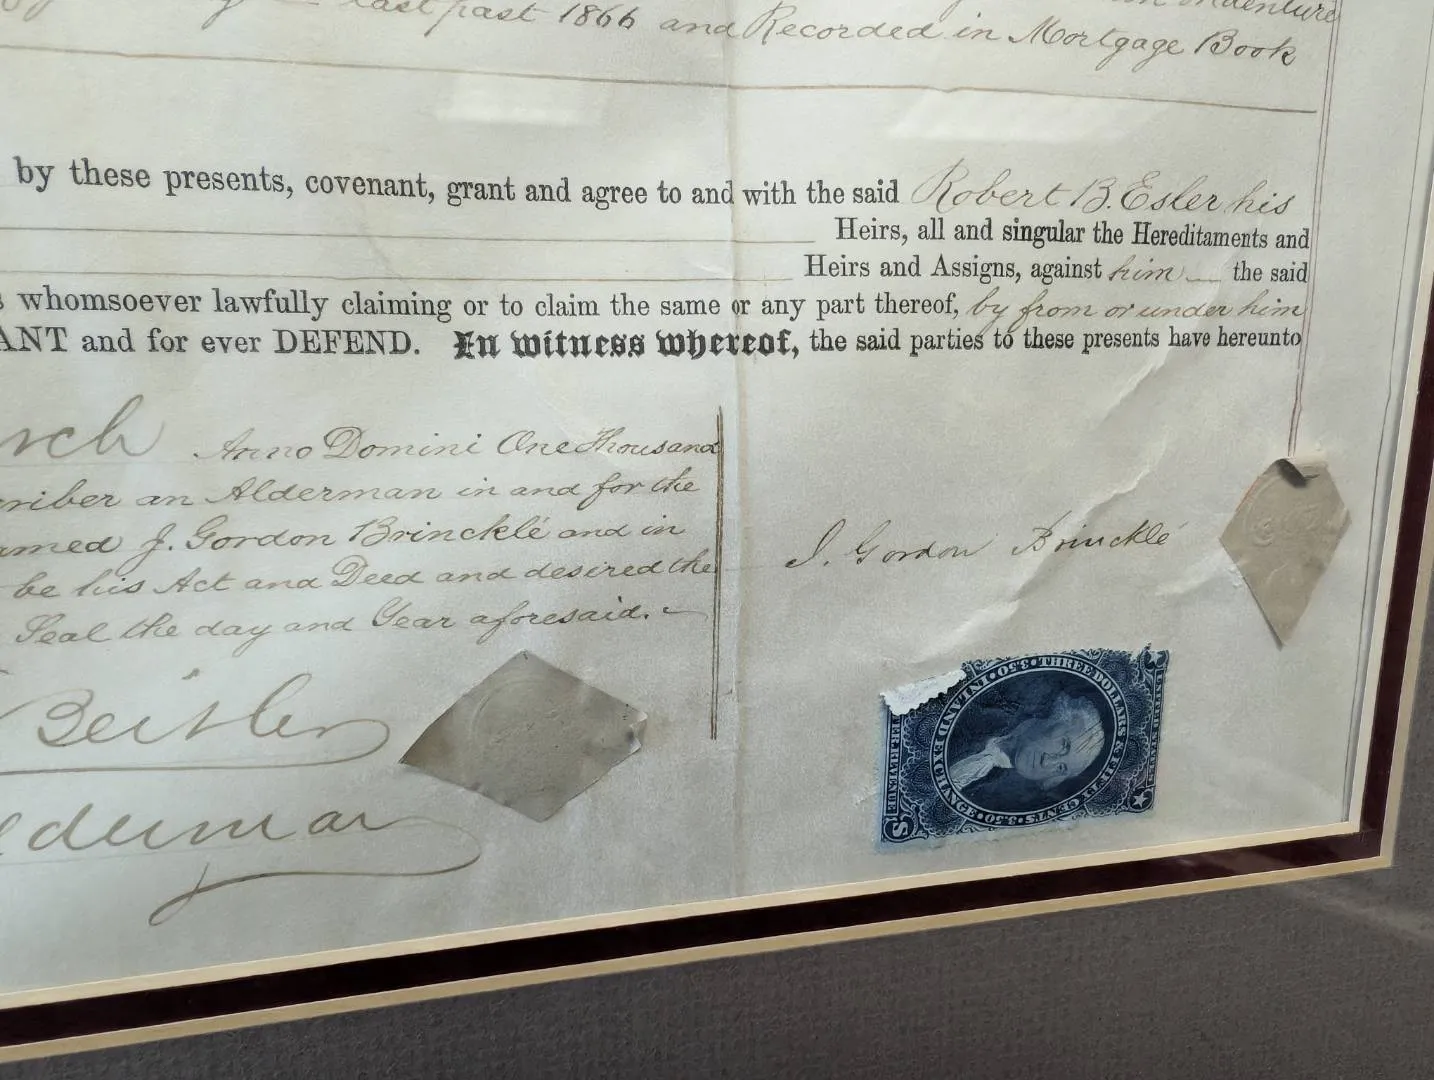 last past 1866 and Recorded in Mortgage Book
by these presents, covenant, grant and agree to and with the said Robert B. Esler his
Heirs, all and singular the Hereditaments and
Heirs and Assigns, against him the said
whomsoever lawfully claiming or to claim the same or any part thereof, by from or under him
ANT and for ever DEFEND. In witness whereof, the said parties to these presents have hereunto
rch Anno Domini One Thousand
riber an Alderman in and for the
amed J. Gordon Brincklé and in
be his Act and Deed and desired the
Seal the day and Year aforesaid.
J. Gordon Brincklé
Beitler
INLAND EXCHANGE
3.50 THREE DOLLARS & FIFTY CENTS 3.50
UNITED STATES
TER. REVENUE